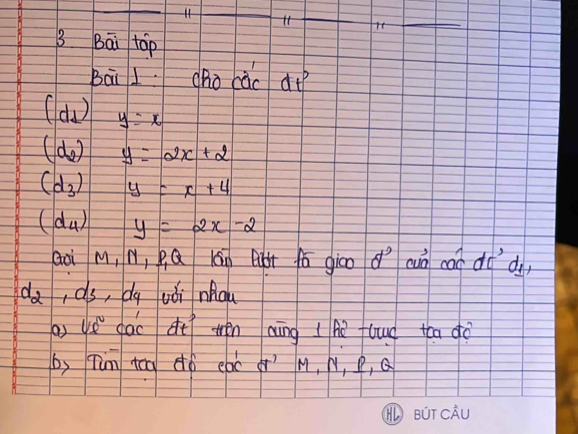 3 Bài tập
Bài 1 : cho các đt'
(d1) y = x
(d2) y = 2x + 2
(d3) y = x + 4
(d4) y = 2x - 2
Gọi M, N, P, Q lần lượt là giao đ' của các đt' d1,
d2, d3, d4 với nhau
a) Vẽ các đt' trên cùng 1 hệ trục tọa độ
b) Tìm tọa độ các đ' M, N, P, Q
HL BÚT CẦU